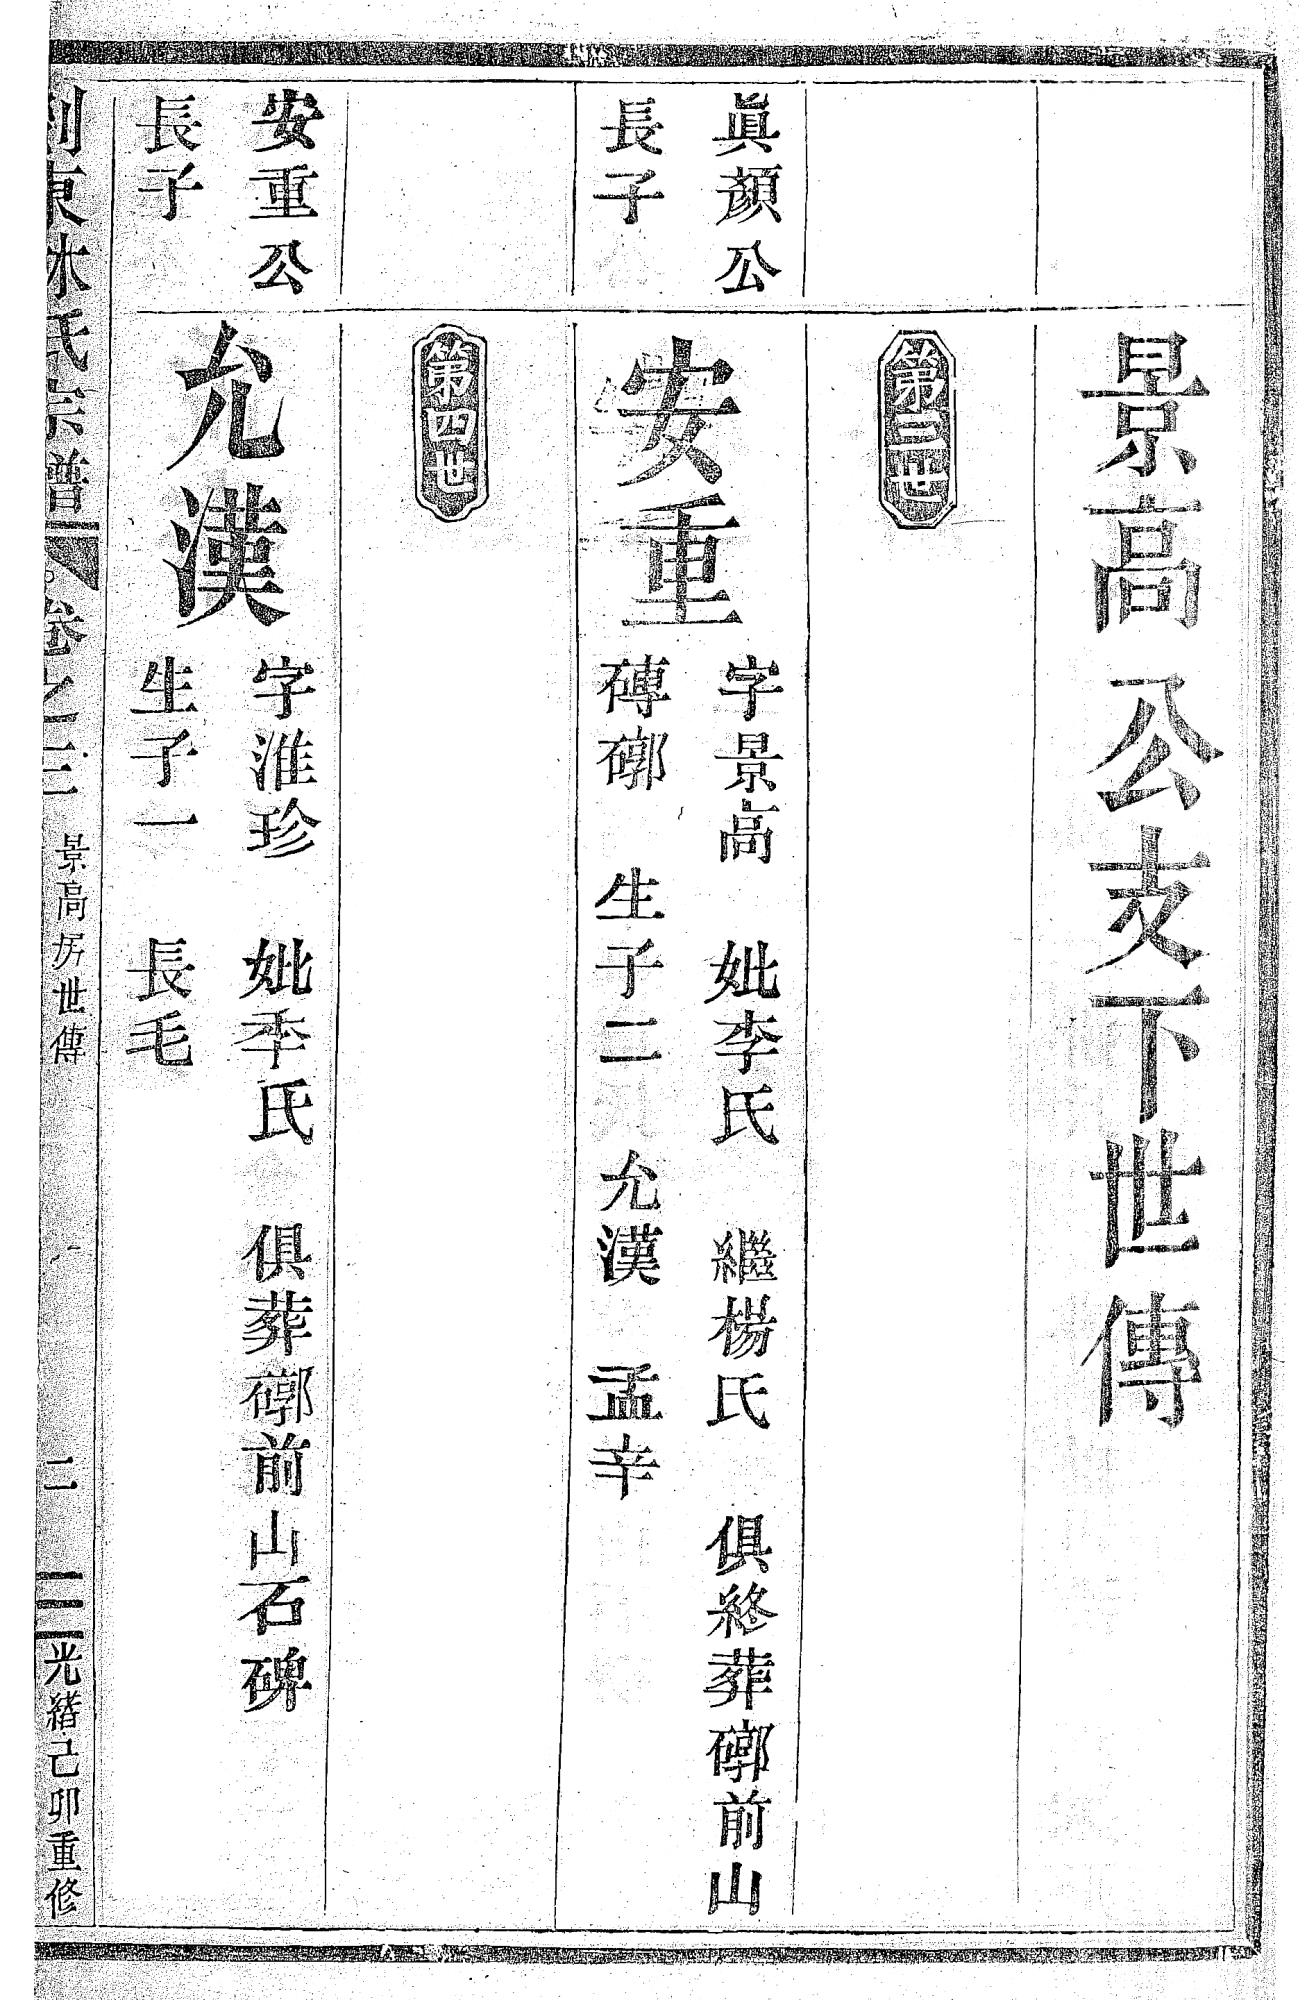 景高公支下世傳
第三世
眞顏公
長子
安重
字景高 妣李氏 繼楊氏 俱終葬𥕐前山
磚𥕐 生子二 允漢 孟辛
第四世
安重公
長子
允漢
字淮珍 妣李氏 俱葬𥕐前山石碑
生子一 長毛
東林氏宗譜 卷之三 景高房世傳 二 光緒己卯重修